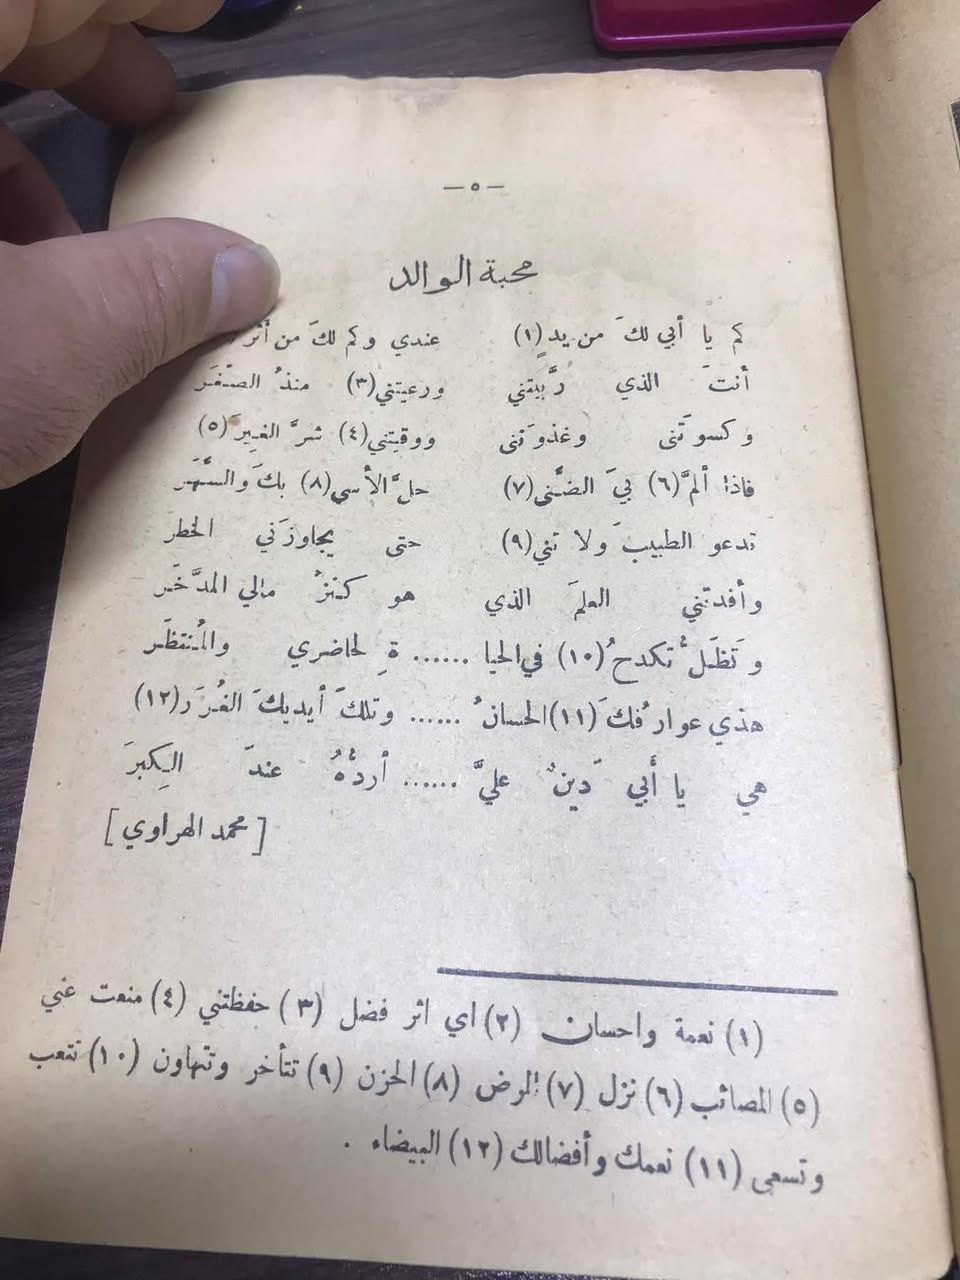 — ٥ —
محبة الوالد
كم يا أبي لكَ من يدٍ(١) عندي وكم لكَ من أثر
أنتَ الذي ربَّيتني ورعيتني(٣) منذُ الصغَر
وكسوتَنى وغذوتَنى ووقيتني(٤) شرَّ الغِيَر(٥)
فاذا ألمَّ(٦) بيَ الضَّنى(٧) حلَّ الأسى(٨) بكَ والسَّهَر
تدعو الطبيبَ ولا تني(٩) حتى يجاوزَني الخطر
وأفدتني العلمَ الذي هو كنزُ مالي المدَّخَر
وتَظَلُّ تكدحُ(١٠) في الحيا ...... ةِ لحاضري والمُنتظَر
هذي عوارُفكَ(١١) الحسانُ ...... وتلكَ أيديكَ الغُرَر(١٢)
هي يا أبي دَينٌ عليَّ ...... أردُّهُ عندَ الكِبَرَ
[محمد الهراوي]
(١) نعمة واحسان (٢) اي اثر فضل (٣) حفظتني (٤) منعت عني
(٥) المصائب (٦) نزل (٧) المرض (٨) الحزن (٩) تتأخر وتتهاون (١٠) تتعب
وتسعى (١١) نعمك وأفضالك (١٢) البيضاء .